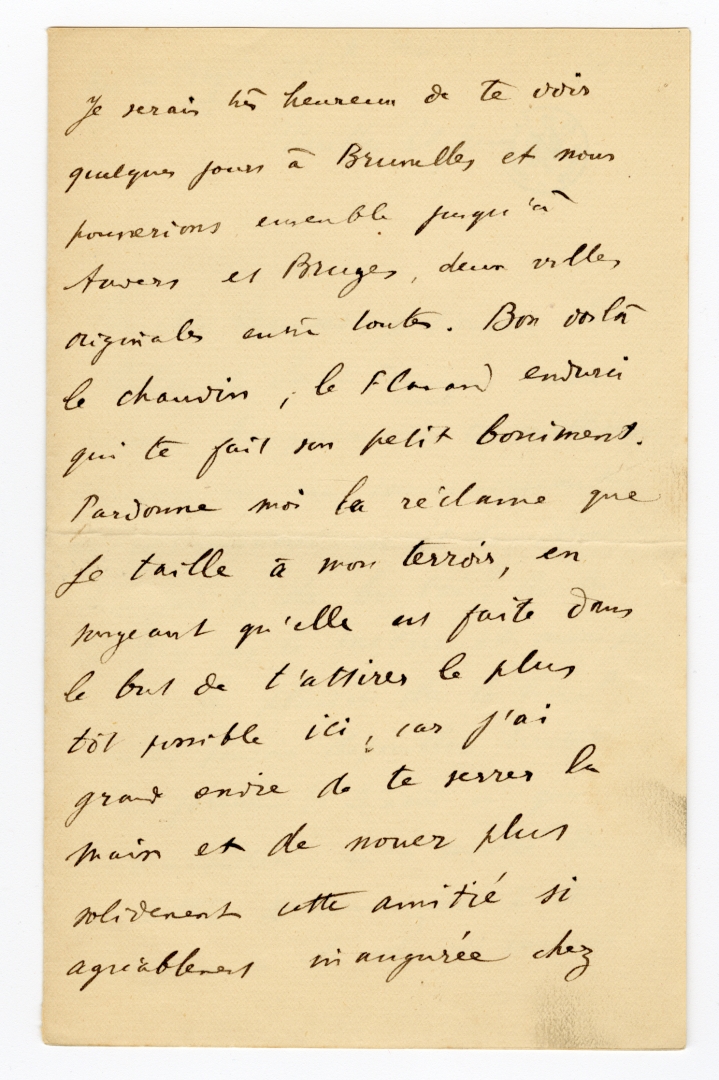 Je serais très heureux de te voir
quelques jours à Bruxelles et nous
pousserions ensemble jusqu'à
Anvers et Bruges, deux villes
originales entre toutes. Bon voilà
le chauvin, le Flamand endurci
qui te fait son petit boniment.
Pardonne moi la réclame que
je taille à mon terroir, en
songeant qu'elle est faite dans
le but de t'attirer le plus
tôt possible ici, car j'ai
grand envie de te serrer la
main et de nouer plus
solidement cette amitié si
agréablement inaugurée chez